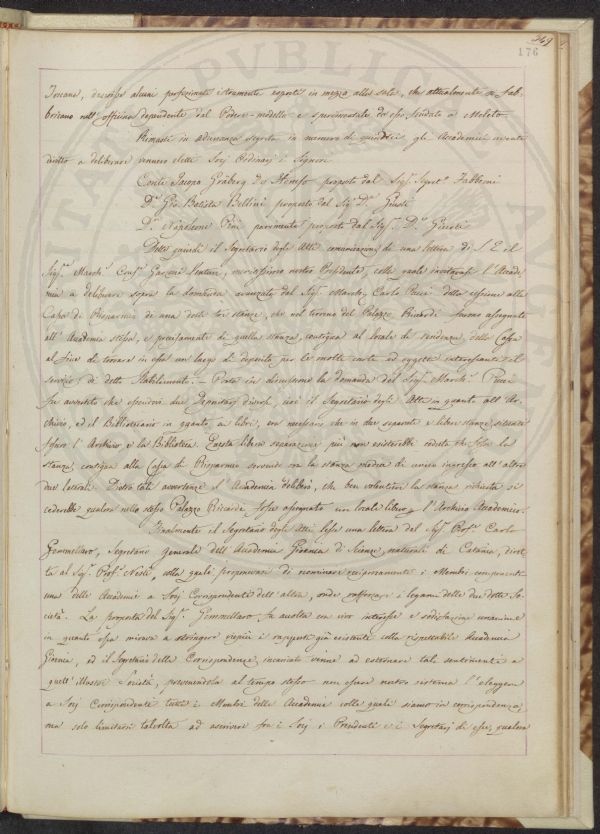 249
176
Toscana, descrisse alcuni perfezionati istrumenti esposti in mezzo alla sala, che attualmente si fab-
bricano nell'officina dipendente dal Podere-modello e sperimentale da esso fondato a Meleto.
Rimasti in adunanza segreta in numero di quindici gli Accademici aventi
diritto a deliberare vennero eletti Socj Ordinarj i Signori
Conte Jacopo Gräberg da Hemsö proposto dal Sig. Segret.º Fabbroni
D.r Gio Batista Bellini proposto dal Sig. D.r Giusti
D.r Napoleone Pini parimente proposto dal Sig. D.r Giusti
Dette quindi il Segretario degli Atti comunicazione di una lettera di S. E. il
Sig. March. Cons. Garzoni Venturi, meritissimo nostro Presidente, colla quale invitavasi l'Accade-
mia a deliberare sopra la domanda avanzata dal Sig. March. Carlo Pucci della cessione alla
Cassa di Risparmio di una delle tre stanze, che nel terreno del Palazzo Riccardi furono assegnate
all'Accademia stessa, e precisamente di quella stanza, contigua al locale di residenza della Cassa
al fine di trovare in essa un luogo di deposito per le molte carte ed oggetti interessanti il
servizio di detto Stabilimento. — Posta in discussione la domanda del Sig. March. Pucci
fu avvertito che essendovi due Depositarj diversi, cioè il Segretario degli Atti in quanto all'Ar-
chivio, ed il Bibliotecario in quanto ai libri, era necessario che in due separate e libere stanze situati
fossero l'Archivio e la Biblioteca. Questa libera separazione più non esisterebbe ceduta che fosse la
stanza, contigua alla Cassa di Risparmio servendo ora la stanza media di comune ingresso all'altre
due laterali. Dietro tali avvertenze l'Accademia deliberò, che ben volentieri la stanza richiesta si
cederebbe qualora nello stesso Palazzo Riccardi fosse assegnato un locale libero per l'Archivio Accademico.
Finalmente il Segretario degli Atti lesse una lettera del Sig. Prof. Carlo
Gemmellaro, Segretario generale dell'Accademia Gioenia di Scienze naturali di Catania, diret-
ta al Sig. Prof. Nesti, colla quale proponevasi di nominare reciprocamente i Membri componenti
una delle Accademie a Socj Corrispondenti dell'altra, onde rafforzare i legami delle due dotte So-
cietà. La proposta del Sig. Gemmellaro fu accolta con vivo interesse e sodisfazione comune
in quanto essa mirava a stringere vie più i rapporti già esistenti colla rispettabile Accademia
Gioenia, ed il Segretario della Corrispondenza incaricato venne ad esternare tali sentimenti a
quell'illustre Società, prevenendola al tempo stesso non essere nostro sistema l'eleggere
a Socj Corrispondenti tutti i Membri delle Accademie colle quali siamo in corrispondenza,
ma solo limitarsi talvolta ad ascrivere fra i Socj i Presidenti e i Segretarj di esse, qualora